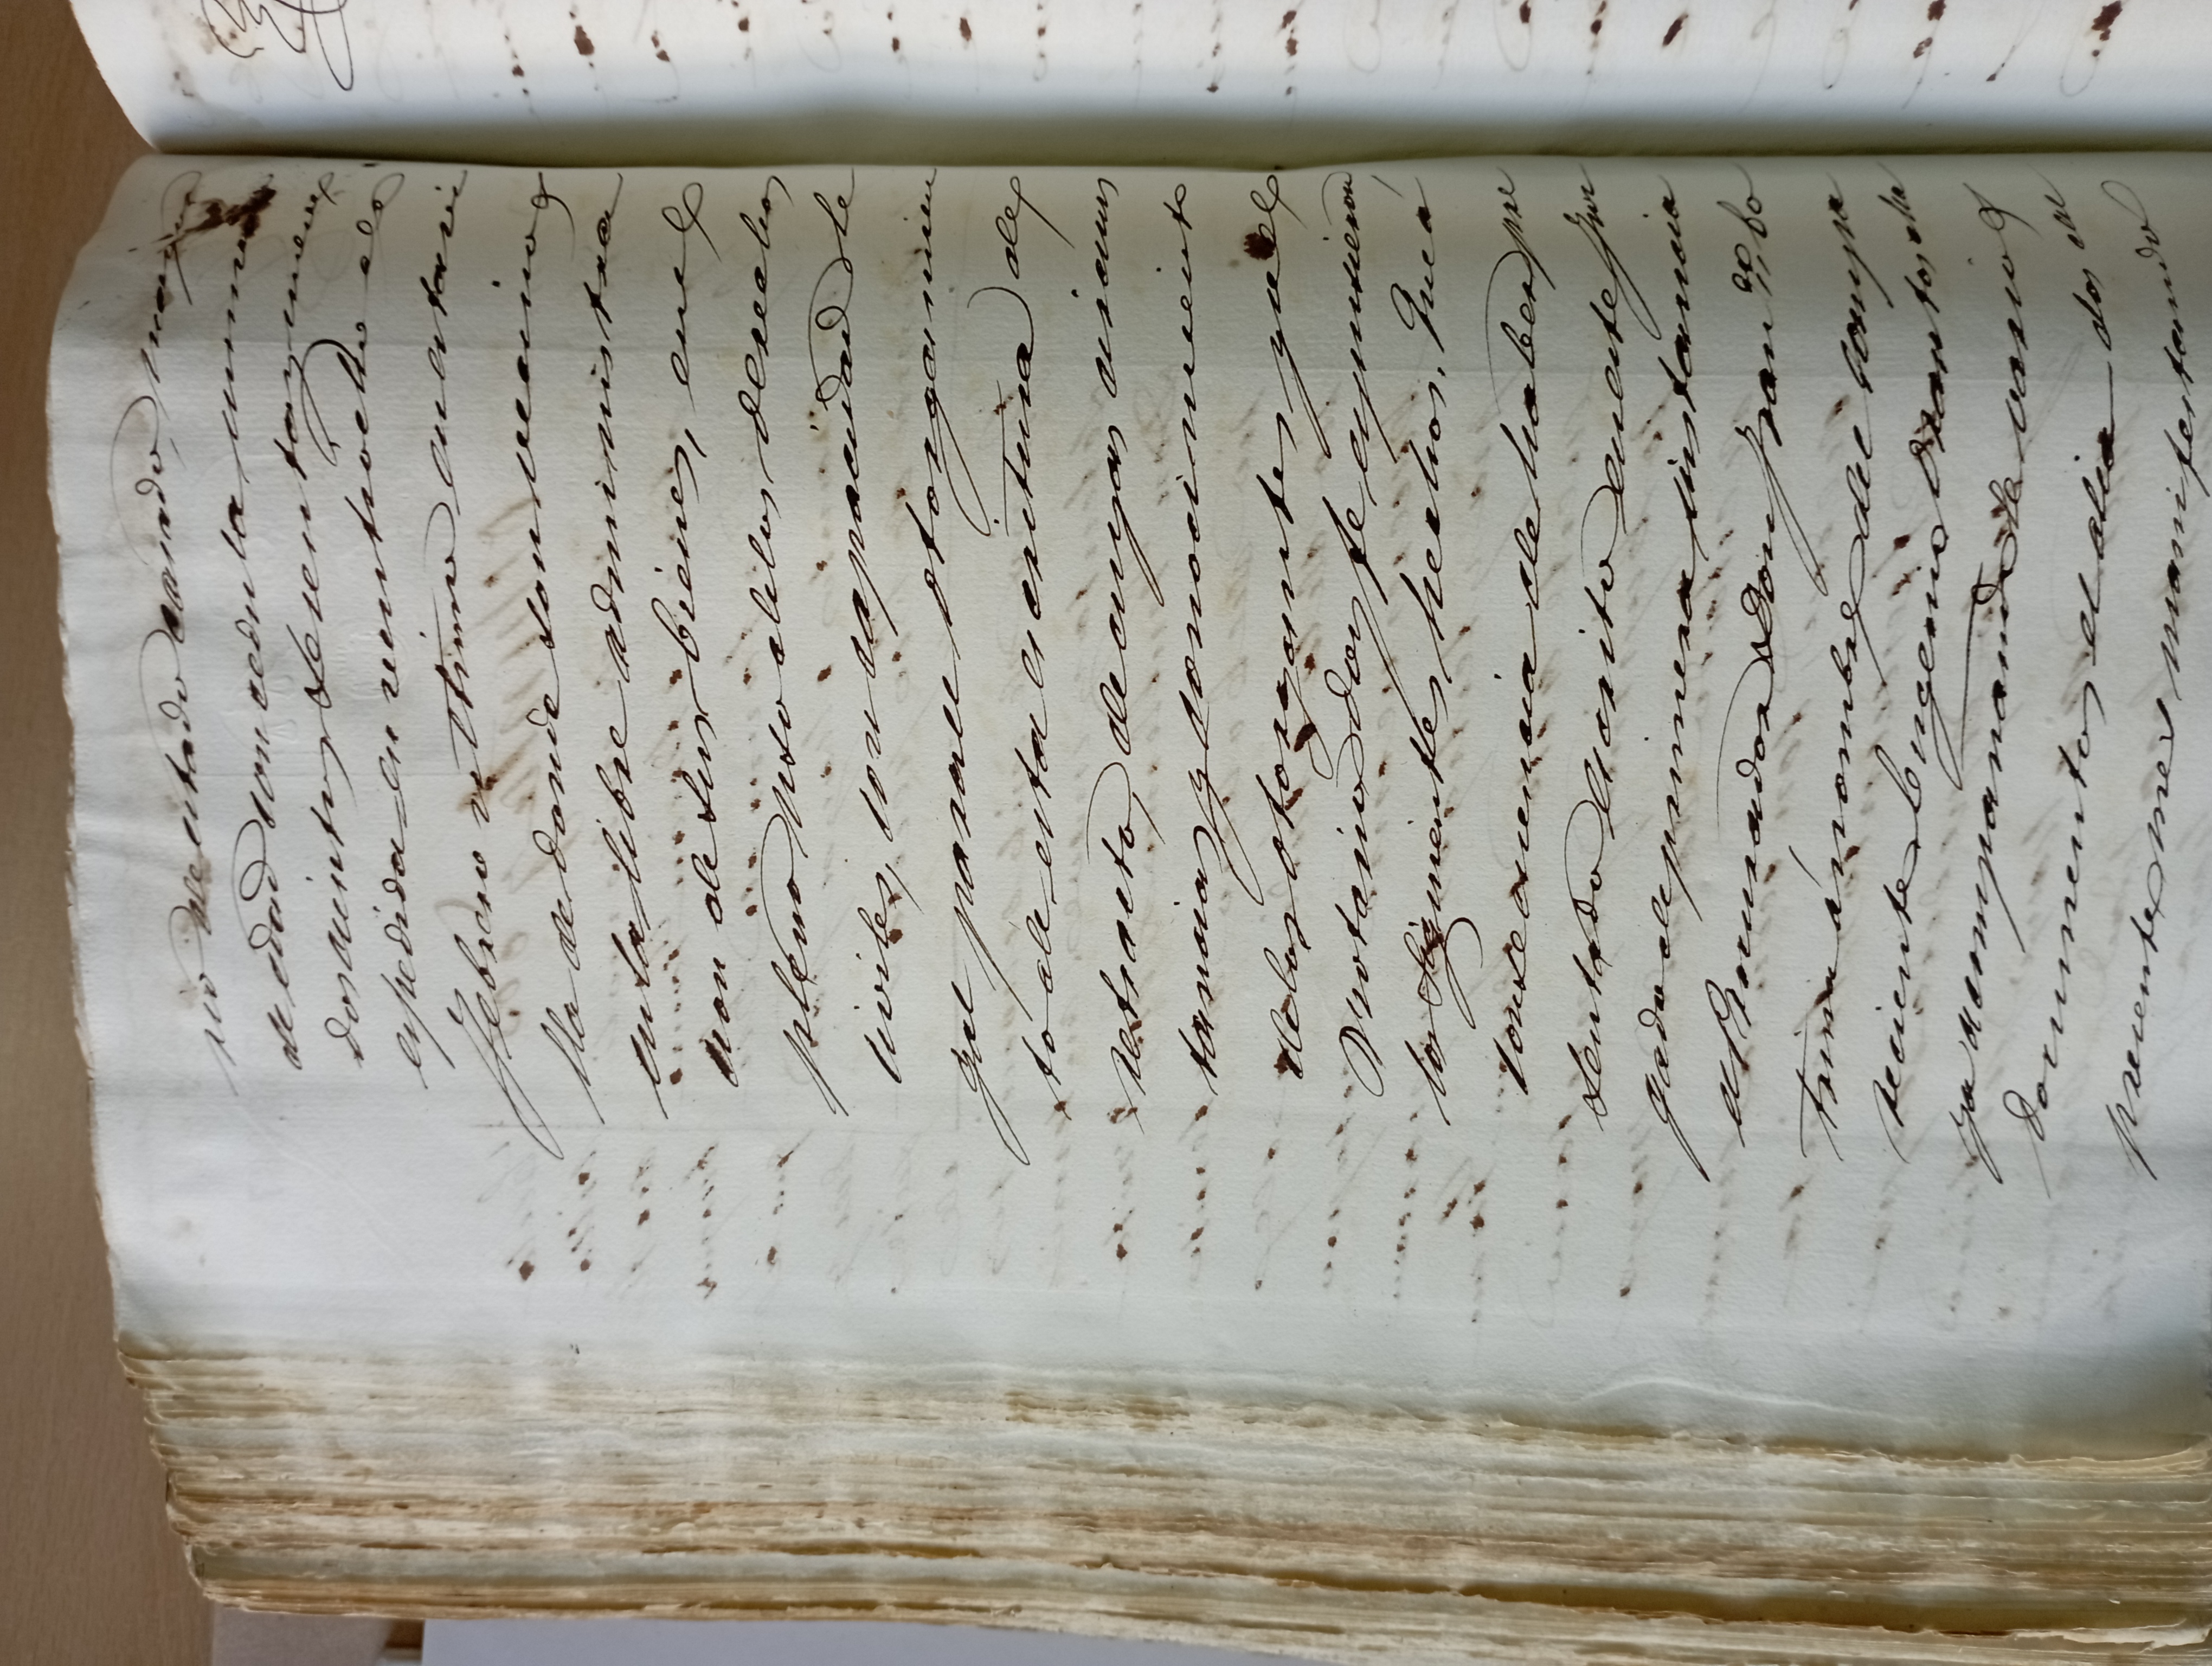 rio de estado casado, mayor
de edad con cedula numero
doscientos sesenta y nueve
espedida en veintiocho de
Febrero ultimo en esta vi
lla de donde son vecinos
en la libre administra
cion de sus bienes, en el
pleno uso de los derechos
civiles, con capacidad le
gal para el otorgamien
to de esta escritura de
retracto, de cuyas circuns
tancias y conocimiento
de los otorgantes yo el
Notario doy fe espusieron
los siguientes hechos. Que á
consecuencia de haber pre
sentado escrito en este Juz
gado de primera instancia
el Procurador Don Fran.co Co
trina á nombre del compa
reciente Eugenio Orantos Ma
ya acompañandole varios
documentos el dia dos del
presente mes manifestando